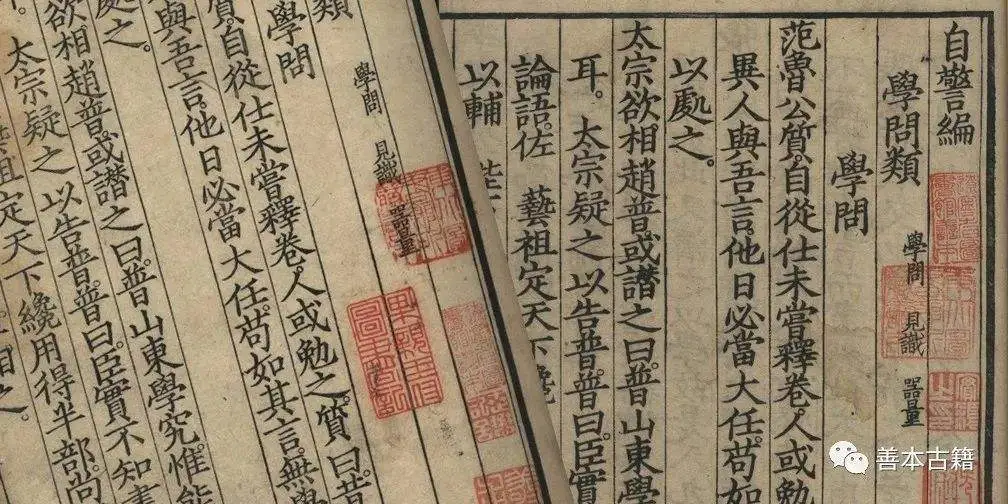 自警編
學問類 學問 見識 器量
學問
范魯公質。自從仕未嘗釋卷。人或勉
異人與吾言。他日必當大任。苟如
以處之。
太宗欲相趙普。或譖之曰。普山東學
耳。太宗疑之 以告普。普曰。臣實
論語。佐 藝祖定天下。纔
以輔
類 學問 見識 器量
學問
質。自從仕未嘗釋卷。人或勉之。質曰。昔
與吾言。他日必當大任。苟如其言。無學
處之。
欲相趙普。或譖之曰。普山東學究。惟能
太宗疑之 以告普。普曰。臣實不知書
藝祖定天下。纔用得半部。尚
相之。
善本古籍